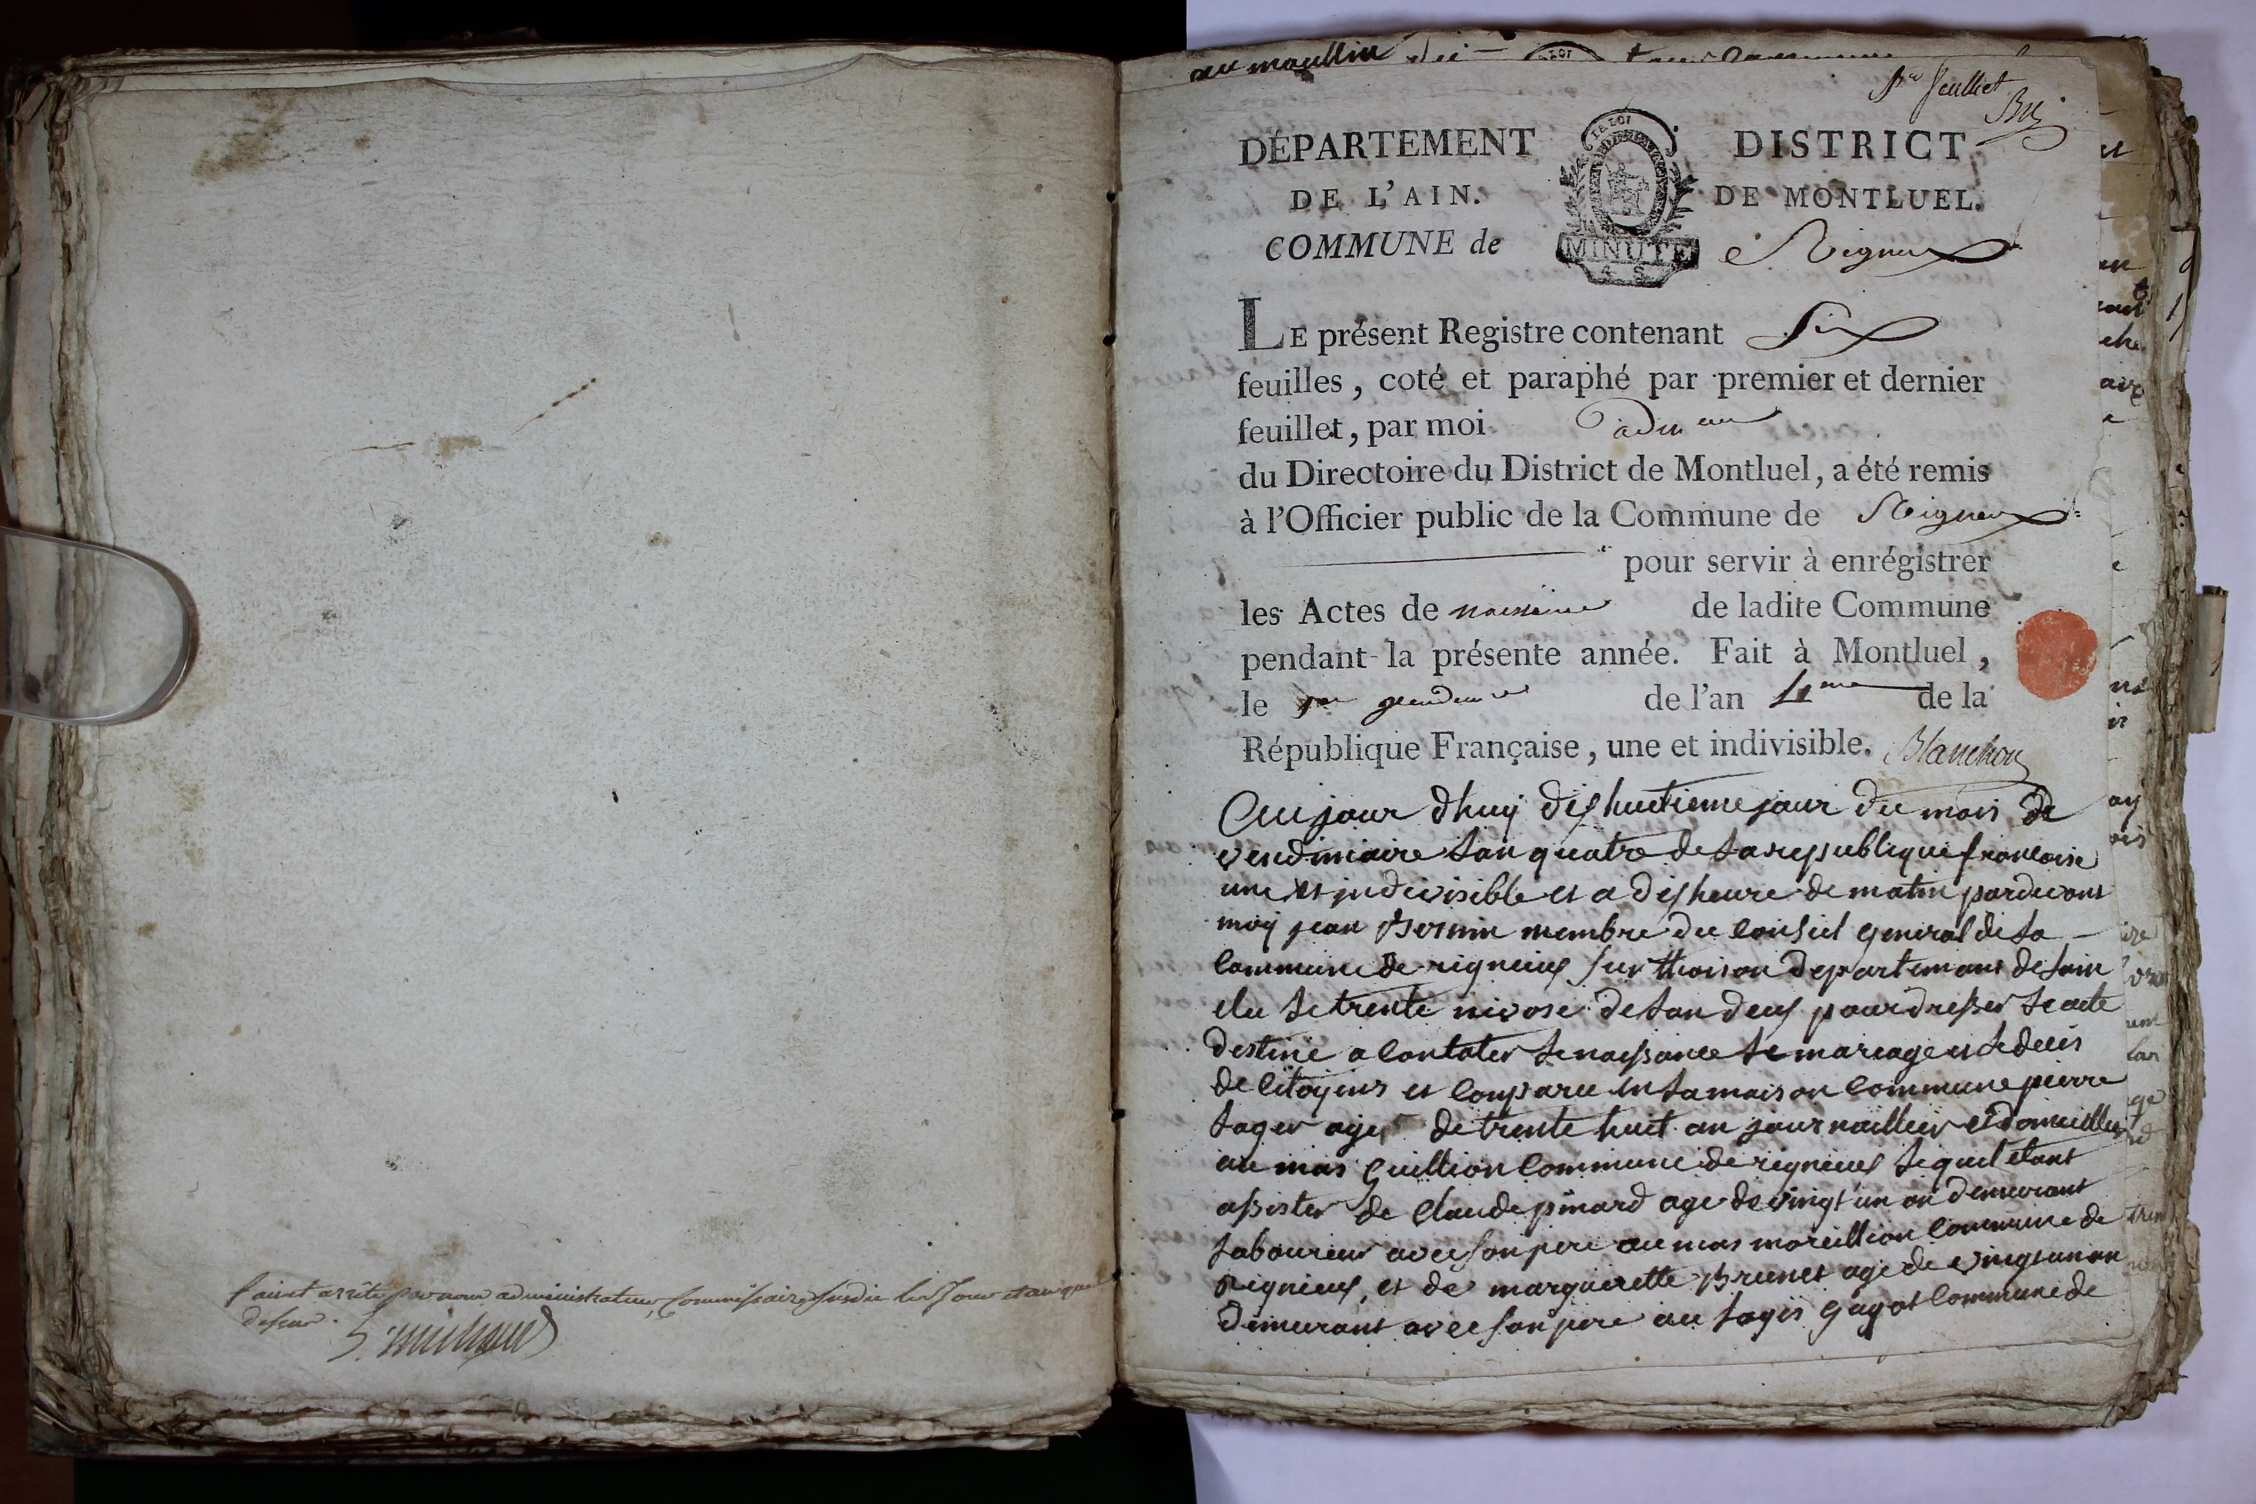 fait et arrêté par nous administrateur, Commissaire susdit les Jour et an que
dessus.
au moullin
1er feuillet
DÉPARTEMENT
DE L'AIN.
COMMUNE de
MINUTE
4. S.
DISTRICT
DE MONTLUEL.
Rigneux
LE présent Registre contenant Six
feuilles, coté et paraphé par premier et dernier
feuillet, par moi
du Directoire du District de Montluel, a été remis
à l'Officier public de la Commune de Rigneux
pour servir à enrégistrer
les Actes de naissance de ladite Commune
pendant la présente année. Fait à Montluel,
le 1er vendem.re de l'an 4.me de la
République Française, une et indivisible. Blanchon
Aujour dhuy dix huitieme jour du mois de
vendimiaire lan quatre de la republique francoise
une et indivisible et a dix heure de matin pardevant
moy jean Bernin membre du conseil general de la
commune de rigneux sur thoison departemans de lain
elu le trente nivose de lan deux pour dresser le acte
destiné a contater le naissance le mareage et le deces
de citoyens et conparu en la maison commune pierre
lager agé de trente huit an journaillier et domeillier
au mas guillion commune de rigneux lequel etant
assister de claude pinard age de vingt un an demeurant
laboureur avec son pere au mas moreillion commune de
Rigneux, et de marguerette Brunet age de vingt un an
demeurant avec son pere au layes guyot commune de